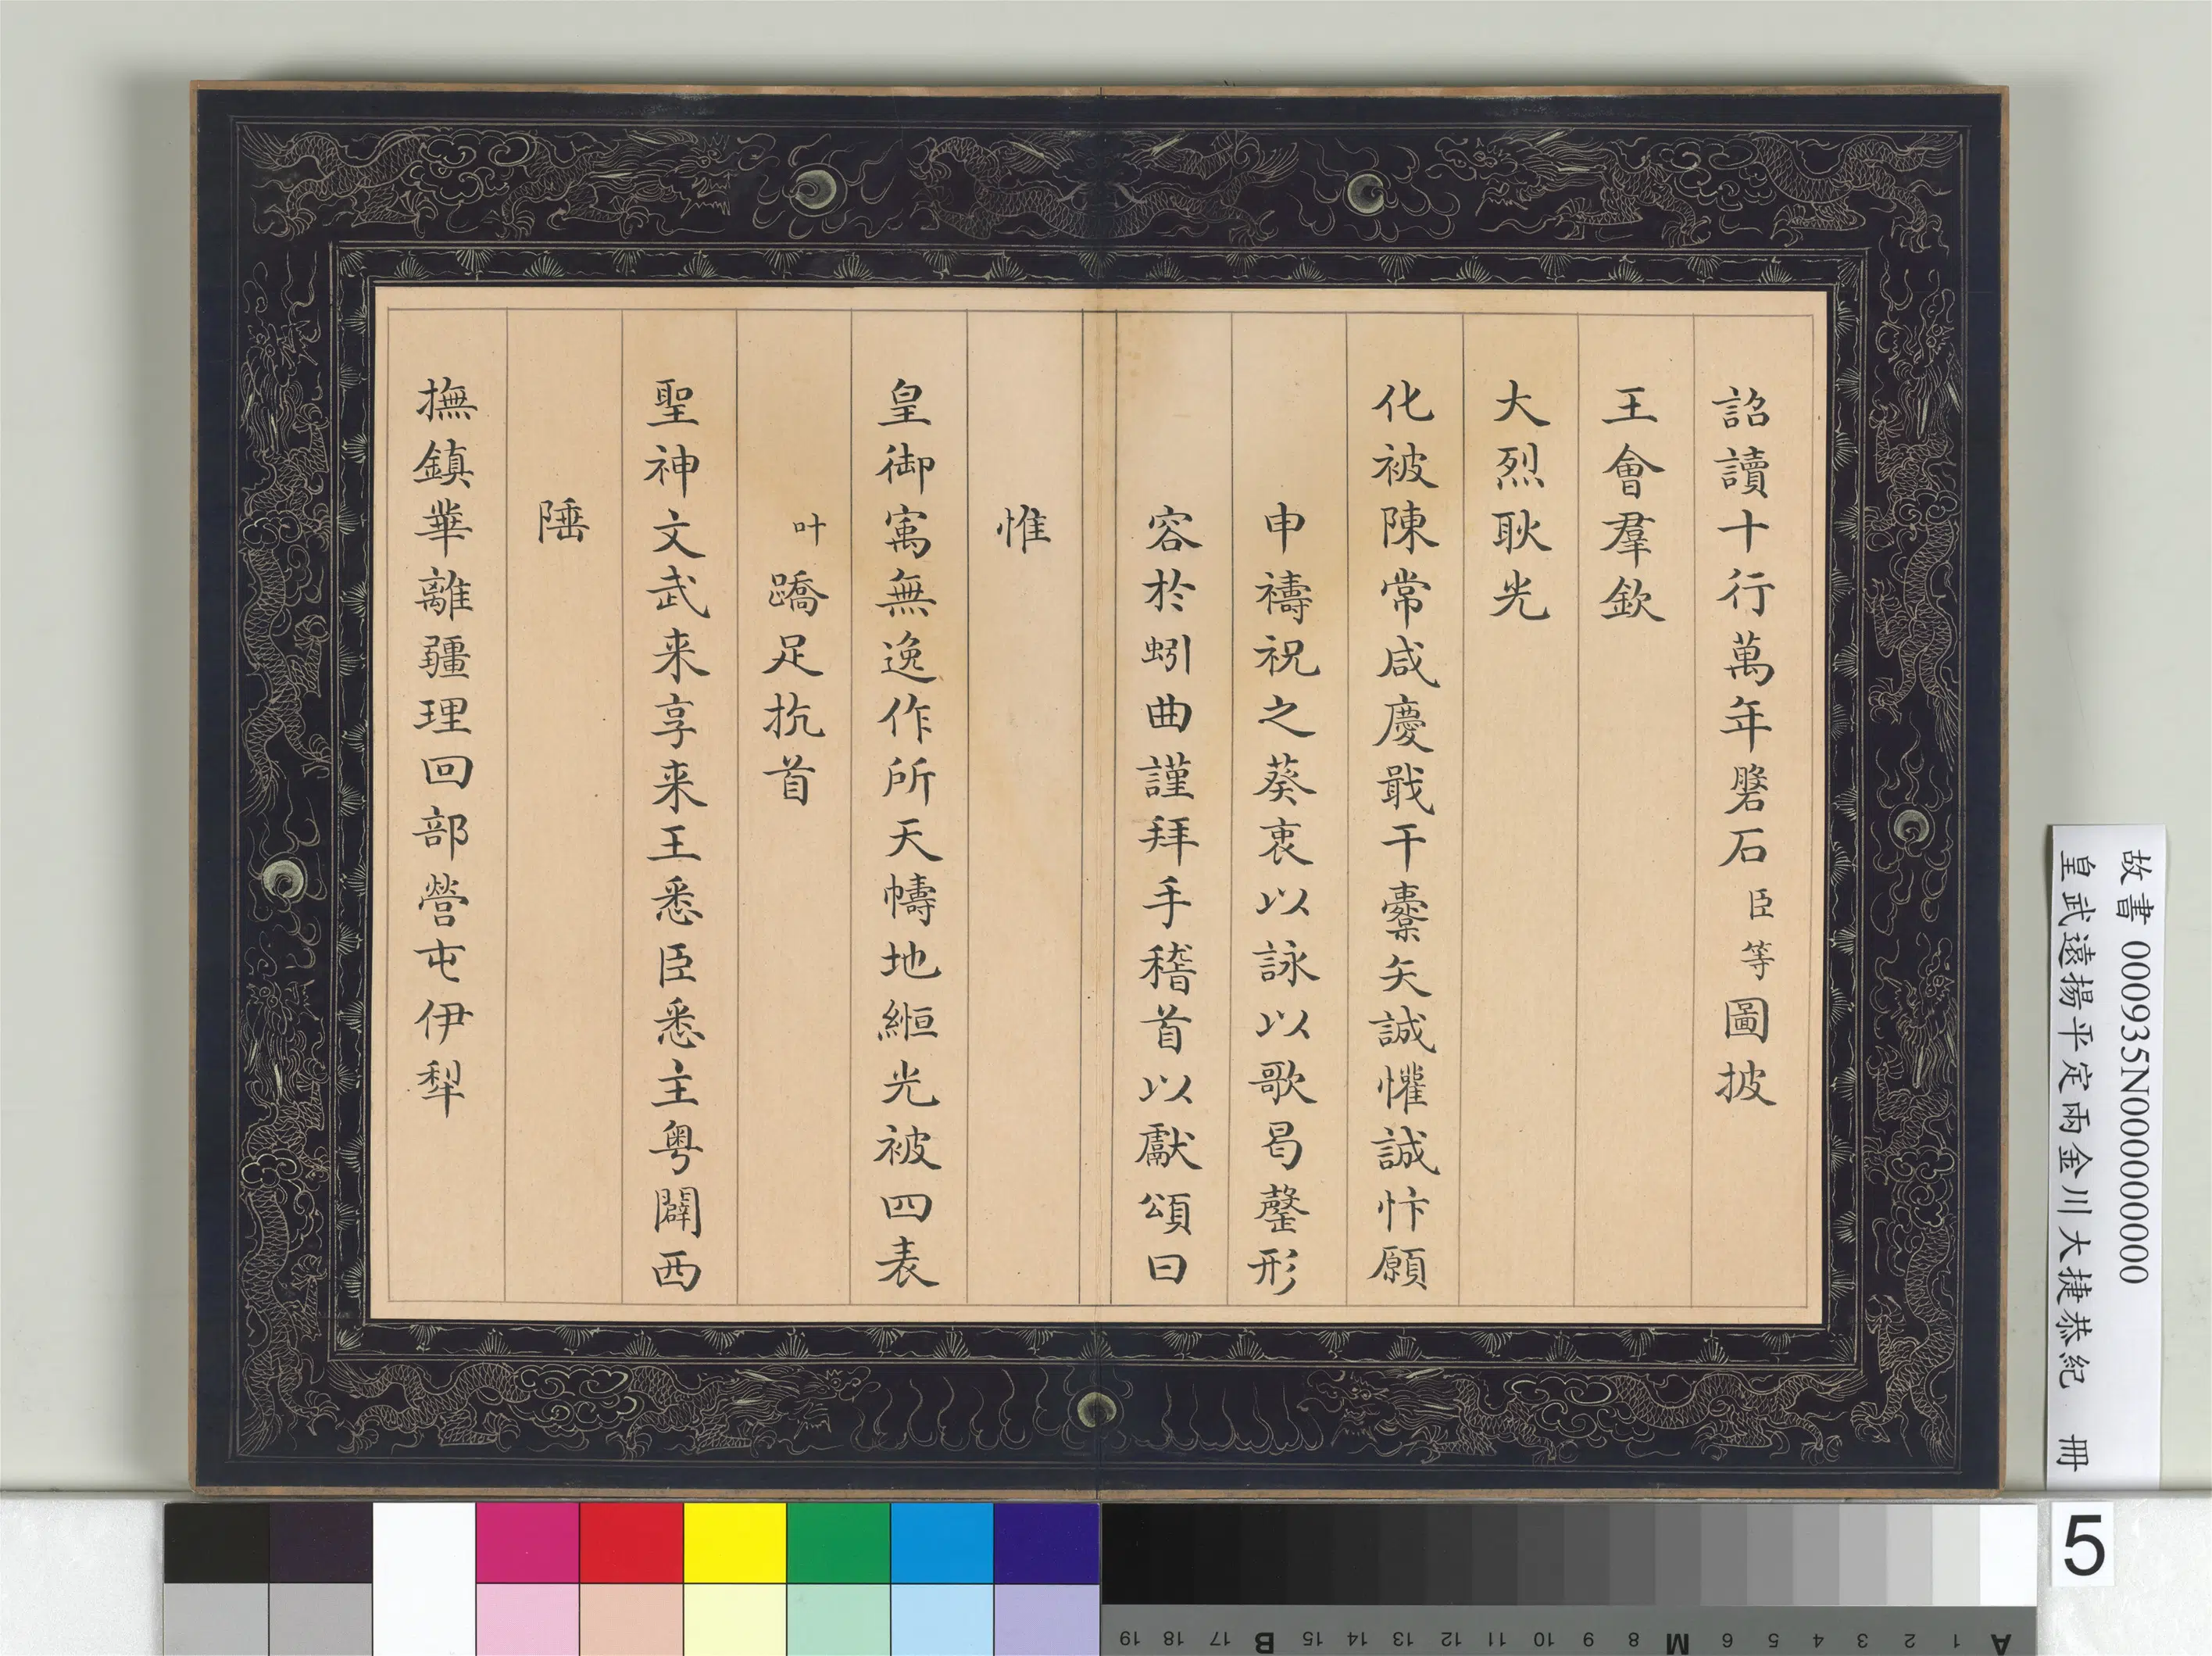 詔讀十行萬年磐石臣等圖披
王會羣欽
大烈耿光
化被陳常咸慶戢干櫜矢誠懽誠忭願
申禱祝之葵衷以詠以歌曷罄形
容於蚓曲謹拜手稽首以獻頌曰
惟
皇御寓無逸作所天幬地縆光被四表
叶蹻足抗首
聖神文武来享来王悉臣悉主粤闢西
陲
撫鎮華離疆理回部營屯伊犂
故書 000935N000000000
皇武遠揚平定兩金川大捷恭紀 冊
5
A 1 2 3 4 5 6 M 8 9 10 11 12 13 14 15 B 17 18 19